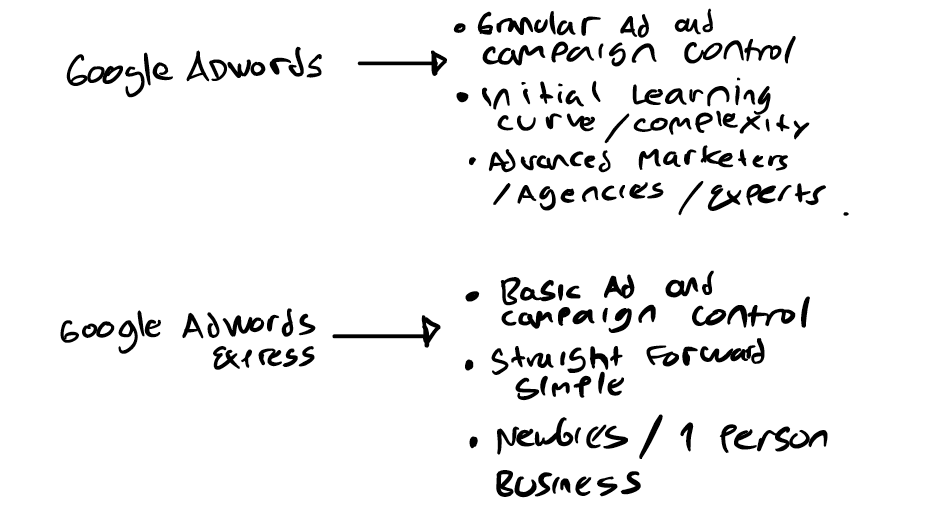 Google Adwords
• Granular Ad and
campaign control
• initial Learning
curve/complexity
• Advanced Marketers
/Agencies/Experts.
Google Adwords
Express
• Basic Ad and
campaign control
• Straight Forward
Simple
• Newbies/1 Person
Business